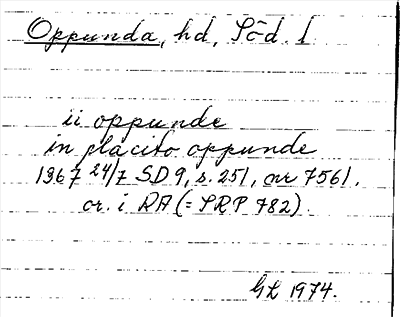 Oppunda, hd, Söd. l
ii oppunde
in placito oppunde
1367 24/7 SD 9, s. 251, nr 7561.
or. i RA (= SRP 782).
GL 1974.